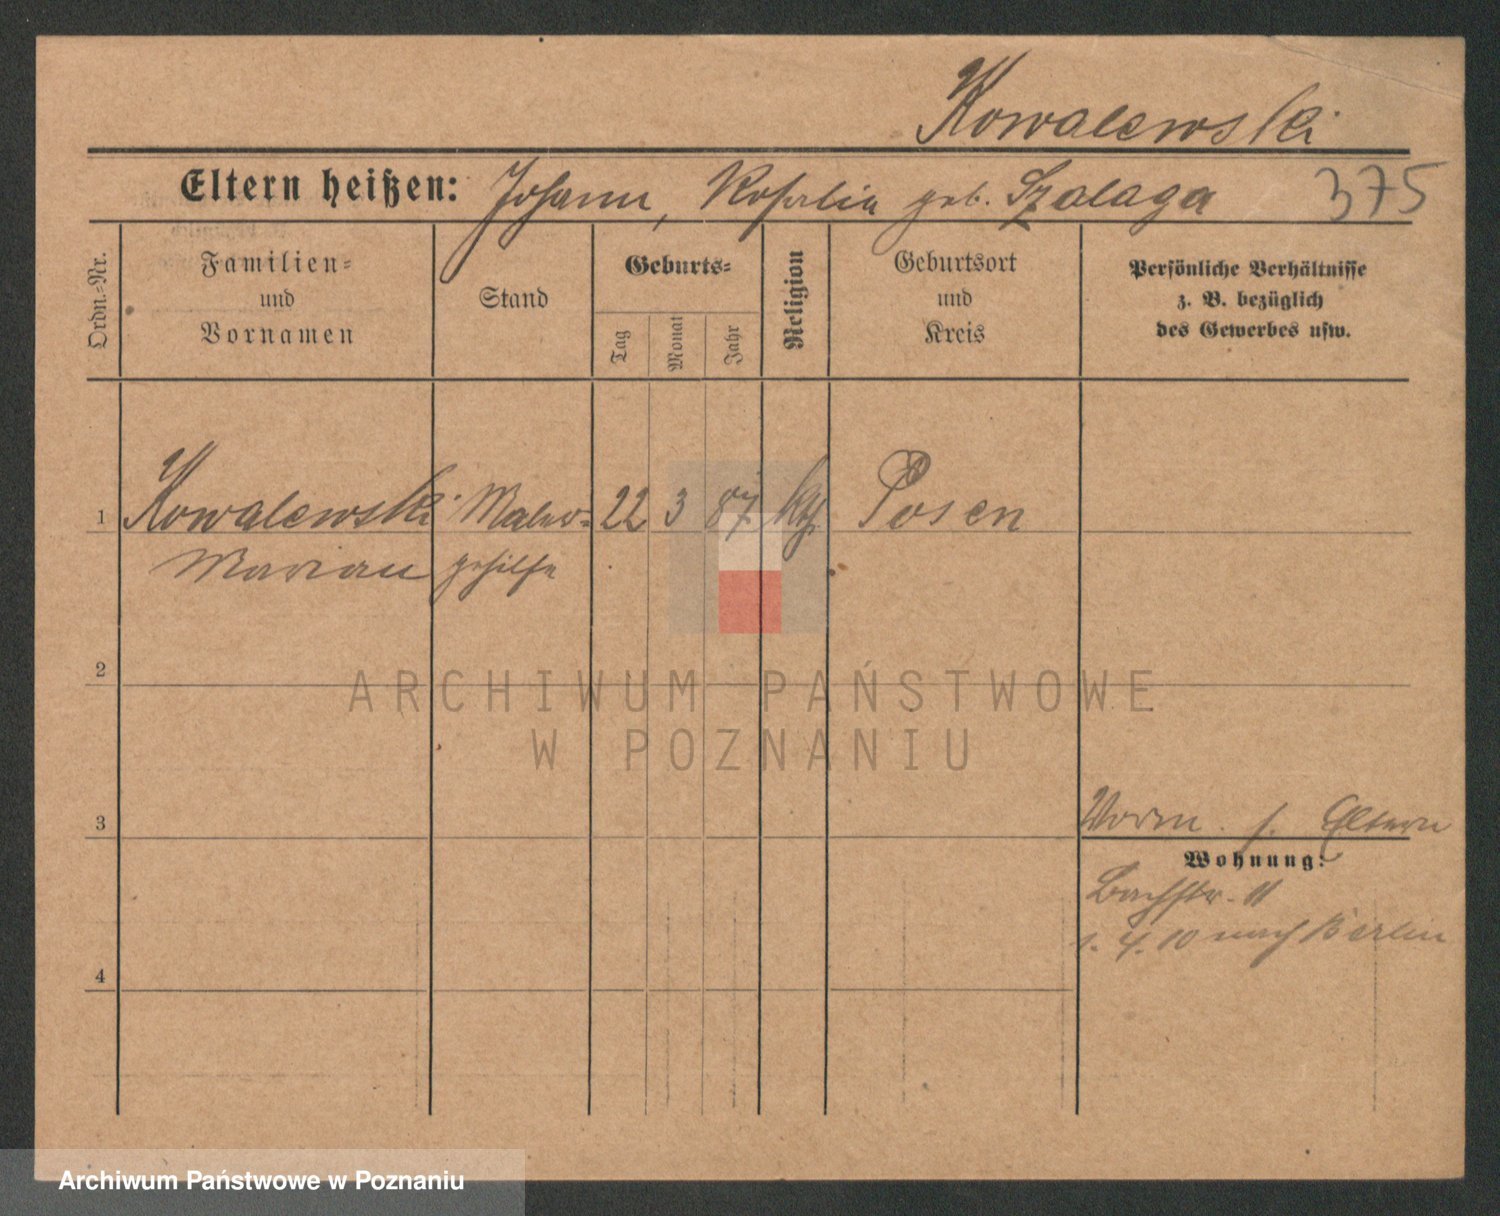 Kowalewski
Eltern heißen: Johann, Rosalia geb. Szalaga 375
Ordn.=Nr.
Familien=
und
Vornamen
Stand
Geburts=
Tag
Monat
Jahr
Religion
Geburtsort
und
Kreis
Persönliche Verhältnisse
z. B. bezüglich
des Gewerbes usw.
1 Kowalewski Maler= 22 3 87 kth Posen
Maryan gehilfe
2
ARCHIWUM PAŃSTWOWE
W POZNANIU
3
Vorm. s. Eltern
Wohnung:
Bachstr. 11
1. 4. 10 nach Berlin
4
Archiwum Państwowe w Poznaniu